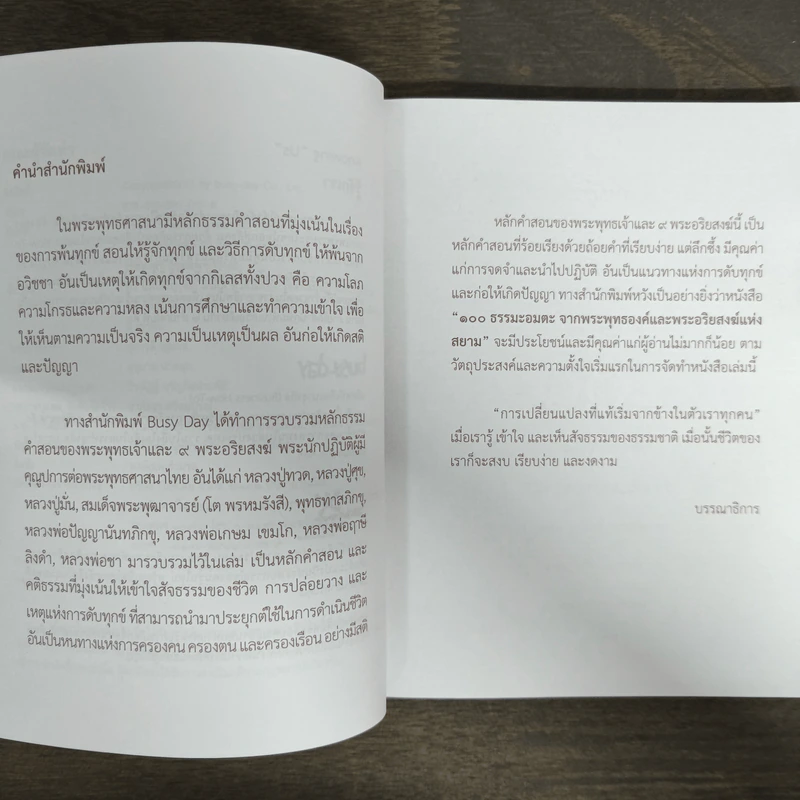 คำนำสำนักพิมพ์
ในพระพุทธศาสนามีหลักธรรมคำสอนที่มุ่งเน้นในเรื่อง
ของการพ้นทุกข์ สอนให้รู้จักทุกข์ และวิธีการดับทุกข์ ให้พ้นจาก
อวิชชา อันเป็นเหตุให้เกิดทุกข์จากกิเลสทั้งปวง คือ ความโลภ
ความโกรธและความหลง เน้นการศึกษาและทำความเข้าใจ เพื่อ
ให้เห็นตามความเป็นจริง ความเป็นเหตุเป็นผล อันก่อให้เกิดสติ
และปัญญา
ทางสำนักพิมพ์ Busy Day ได้ทำการรวบรวมหลักธรรม
คำสอนของพระพุทธเจ้าและ ๙ พระอริยสงฆ์ พระนักปฏิบัติผู้มี
คุณูปการต่อพระพุทธศาสนาไทย อันได้แก่ หลวงปู่ทวด, หลวงปู่ศุข,
หลวงปู่มั่น, สมเด็จพระพุฒาจารย์ (โต พรหมรังสี), พุทธทาสภิกขุ,
หลวงพ่อปัญญานันทภิกขุ, หลวงพ่อเกษม เขมโก, หลวงพ่อฤาษี
ลิงดำ, หลวงพ่อชา มารวบรวมไว้ในเล่ม เป็นหลักคำสอน และ
คติธรรมที่มุ่งเน้นให้เข้าใจสัจธรรมของชีวิต การปล่อยวาง และ
เหตุแห่งการดับทุกข์ ที่สามารถนำมาประยุกต์ใช้ในการดำเนินชีวิต
อันเป็นหนทางแห่งการครองคน ครองตน และครองเรือน อย่างมีสติ
หลักคำสอนของพระพุทธเจ้าและ ๙ พระอริยสงฆ์นี้ เป็น
หลักคำสอนที่ร้อยเรียงด้วยถ้อยคำที่เรียบง่าย แต่ลึกซึ้ง มีคุณค่า
แก่การจดจำและนำไปปฏิบัติ อันเป็นแนวทางแห่งการดับทุกข์
และก่อให้เกิดปัญญา ทางสำนักพิมพ์หวังเป็นอย่างยิ่งว่าหนังสือ
“๑๐๐ ธรรมะอมตะ จากพระพุทธองค์และพระอริยสงฆ์แห่ง
สยาม” จะมีประโยชน์และมีคุณค่าแก่ผู้อ่านไม่มากก็น้อย ตาม
วัตถุประสงค์และความตั้งใจเริ่มแรกในการจัดทำหนังสือเล่มนี้
“การเปลี่ยนแปลงที่แท้เริ่มจากข้างในตัวเราทุกคน”
เมื่อเรารู้ เข้าใจ และเห็นสัจธรรมของธรรมชาติ เมื่อนั้นชีวิตของ
เราก็จะสงบ เรียบง่าย และงดงาม
บรรณาธิการ